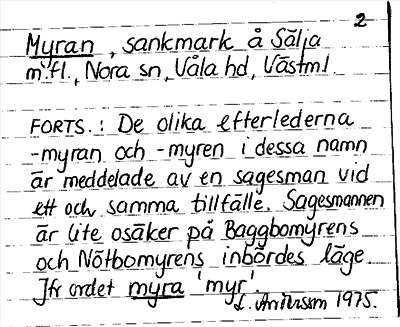 2
Myran, sankmark å Sälja
m.fl., Nora sn, Våla hd, Västml.
FORTS.: De olika efterlederna
-myran och -myren i dessa namn
är meddelade av en sagesman vid
ett och samma tillfälle. Sagesmannen
är lite osäker på Baggbomyrens
och Nötbomyrens inbördes läge.
Jfr ordet myra 'myr'.
1975.